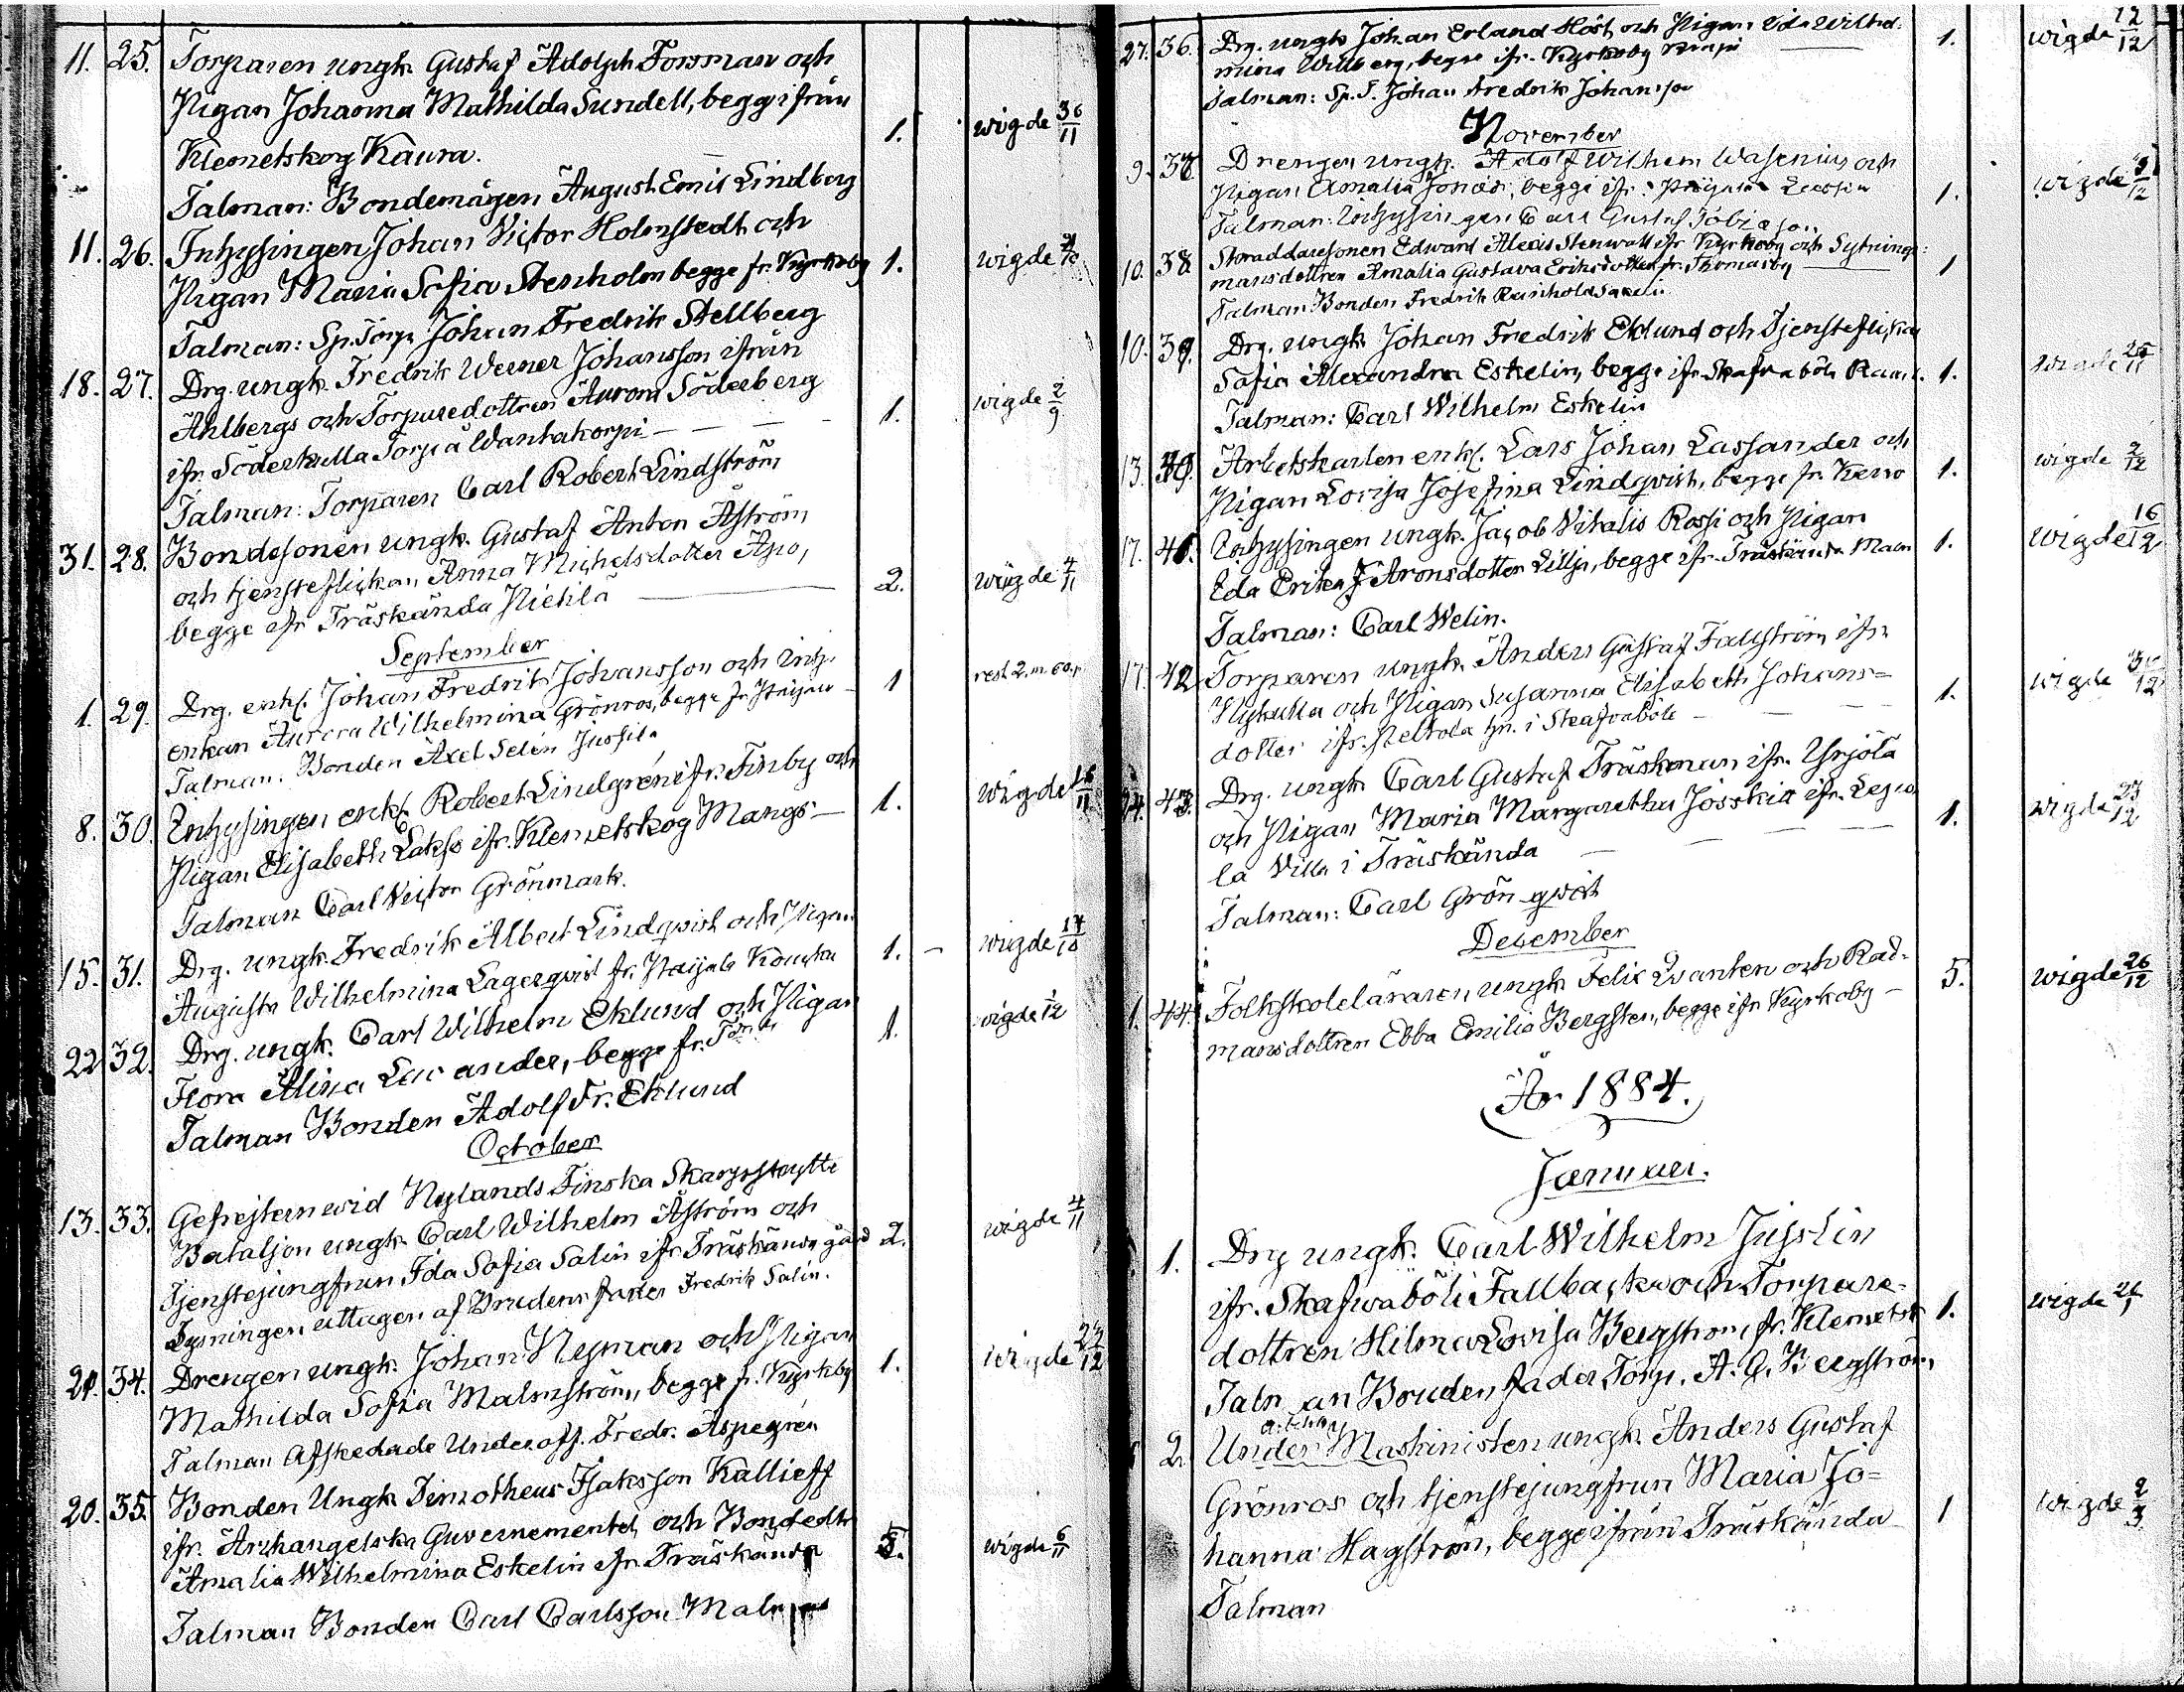 11. 25. Torparen ungk. Gustaf Adolph Forsman och
Pigan Johanna Mathilda Sundell, begge ifrån
Klemetskog Kaura. 1. wigde 30/11
Talman: Bondemågen August Emil Lindberg
11. 26. Inhysingen Johan Victor Holmstedt och
Pigan Maria Sofia Stenholm begge fr. Kyrkoby 1. wigde
Talman: Sp. Torp. Johan Fredrik Stellberg
18. 27. Drg. ungk. Fredrik Werner Johansson ifrån
Ahlbergs och Torparedottren Aurora Söderberg 1. wigde 2/9
ifr. Söderkulla Torp å Wantakorpi
Talman: Torparen Carl Robert Lindström
31. 28. Bondesonen ungk. Gustaf Anton Åström
och tjensteflickan Anna Michelsdotter Apo, 2. wigde 4/11
begge ifr Träskända Pietilä
September
1. 29. Drg. enkl. Johan Fredrik Johansson och Inh.
enkan Aurora Wilhelmina Grönros, begge fr. 1 rest 2 m 60 p
Talman. Bonden Axel Selén Jussila
8. 30. Inhysingen enkl. Robert Lindgrén ifr. Finby och
Pigan Elisabeth Lakso ifr. Klemetskog Mangs 1. wigde
Talman Carl Victor Grönmark.
15. 31. Drg. ungk. Fredrik Albert Lindqvist och Pigan
Augusta Wilhelmina Lagerqvist fr. 1. wigde 14/10
22 32. Drg. ungk. Carl Wilhelm Eklund och Pigan
Flora Alina begge fr. 1. wigde
Talman Bonden Adolf Fr. Eklund
October
13. 33. Gefrejtern wid Nylands Finska Skarpskytte
Bataljon ungk. Carl Wilhelm Åström och
Tjenstejungfrun Ida Sofia Salin ifr. Träskända gård 2. wigde 4/11
Lysningen uttagen af Brudens fader Fredrik Salin.
34. Drengen ungk. Johan Nyman och Pigan
Mathilda Sofia Malmström, begge fr. Kyrkoby 1. wigde
Talman Afskedade Underoff. Fredr. Aspegrén
20. 35. Bonden Ungk Timotheus Isaksson Kallieff
ifr. Archangelska Guvernementet och Bondedtr
Amalia Wilhelmina Eskelin ifr. Träskända wigde 6/11
Talman Bonden Carl Carlsson
27. 36. Drg. ungk Johan Erland Höst och Pigan Ida Wilhel-
mina Willberg, begge ifr. Kyrkoby 1. wigde 12/12
Talman: Sp. T. Johan Fredrik Johansson
November
9. 37. Drengen ungk. Adolf Wilhelm Wasenius och
Pigan Amalia begge ifr. 1. wigde
Talman: Inhysingen Carl Gustaf
10. 38 Edward Alexis Stenwall ifr Kyrkoby och Sytnings-
mansdottren Amalia Gustava Eriksdotter fr. Thomasby 1
Talman Bonden Fredrik Reinhold
10. 39. Drg. ungk Johan Fredrik Eklund och Tjensteflickan
Sofia Alexandra Eskelin, begge ifr. Skafvaböle 1. wigde
Talman: Carl Wilhelm Eskelin
13. 40. Arbetskarlen enkl. Lars Johan Lassander och
Pigan Lovisa Josefina Lindqvist, begge fr. Kervo 1. wigde 2/12
17. 41. Inhysingen ungk. Jacob Vitalis Rossi och Pigan
Eda Erika Aronsdotter Lillja, begge ifr. Träskända 1. wigde 16/12
Talman: Carl Welin.
17. 42 Torparen ungk. Anders Gustaf Fallström ifr.
Nykulla och Pigan Susanna Elisabeth Johans=
dotter ifr. i Skafvaböle 1. wigde
43. Drg. ungk. Carl Gustaf Träskman ifr. Yrjölä
och Pigan Maria Margaretha ifr.
la Villa i Träskända 1. wigde 23/12
Talman: Carl Grönqwist
December
1. 44. Folkskoleläraren, ungk Felix Qvanten och Råd-
mansdottren Ebba Emilia Bergsten, begge ifr Kyrkoby 5. wigde 26/12
År 1884.
Januari.
1. Drg ungk. Carl Wilhelm Jusslin
ifr. Skafwaböle Fallbacka och Torpare-
dottren Hilma Lovisa Bergström fr. Klemetsk 1. wigde
Talman Brudens fader Torp. A. G. Bergström
2. Under Maskinisten ungk. Anders Gustaf
Grönros och tjenstejungfrun Maria Jo=
hanna Hagström, begge ifrån Träskända 1 wigde 2/3
Talman